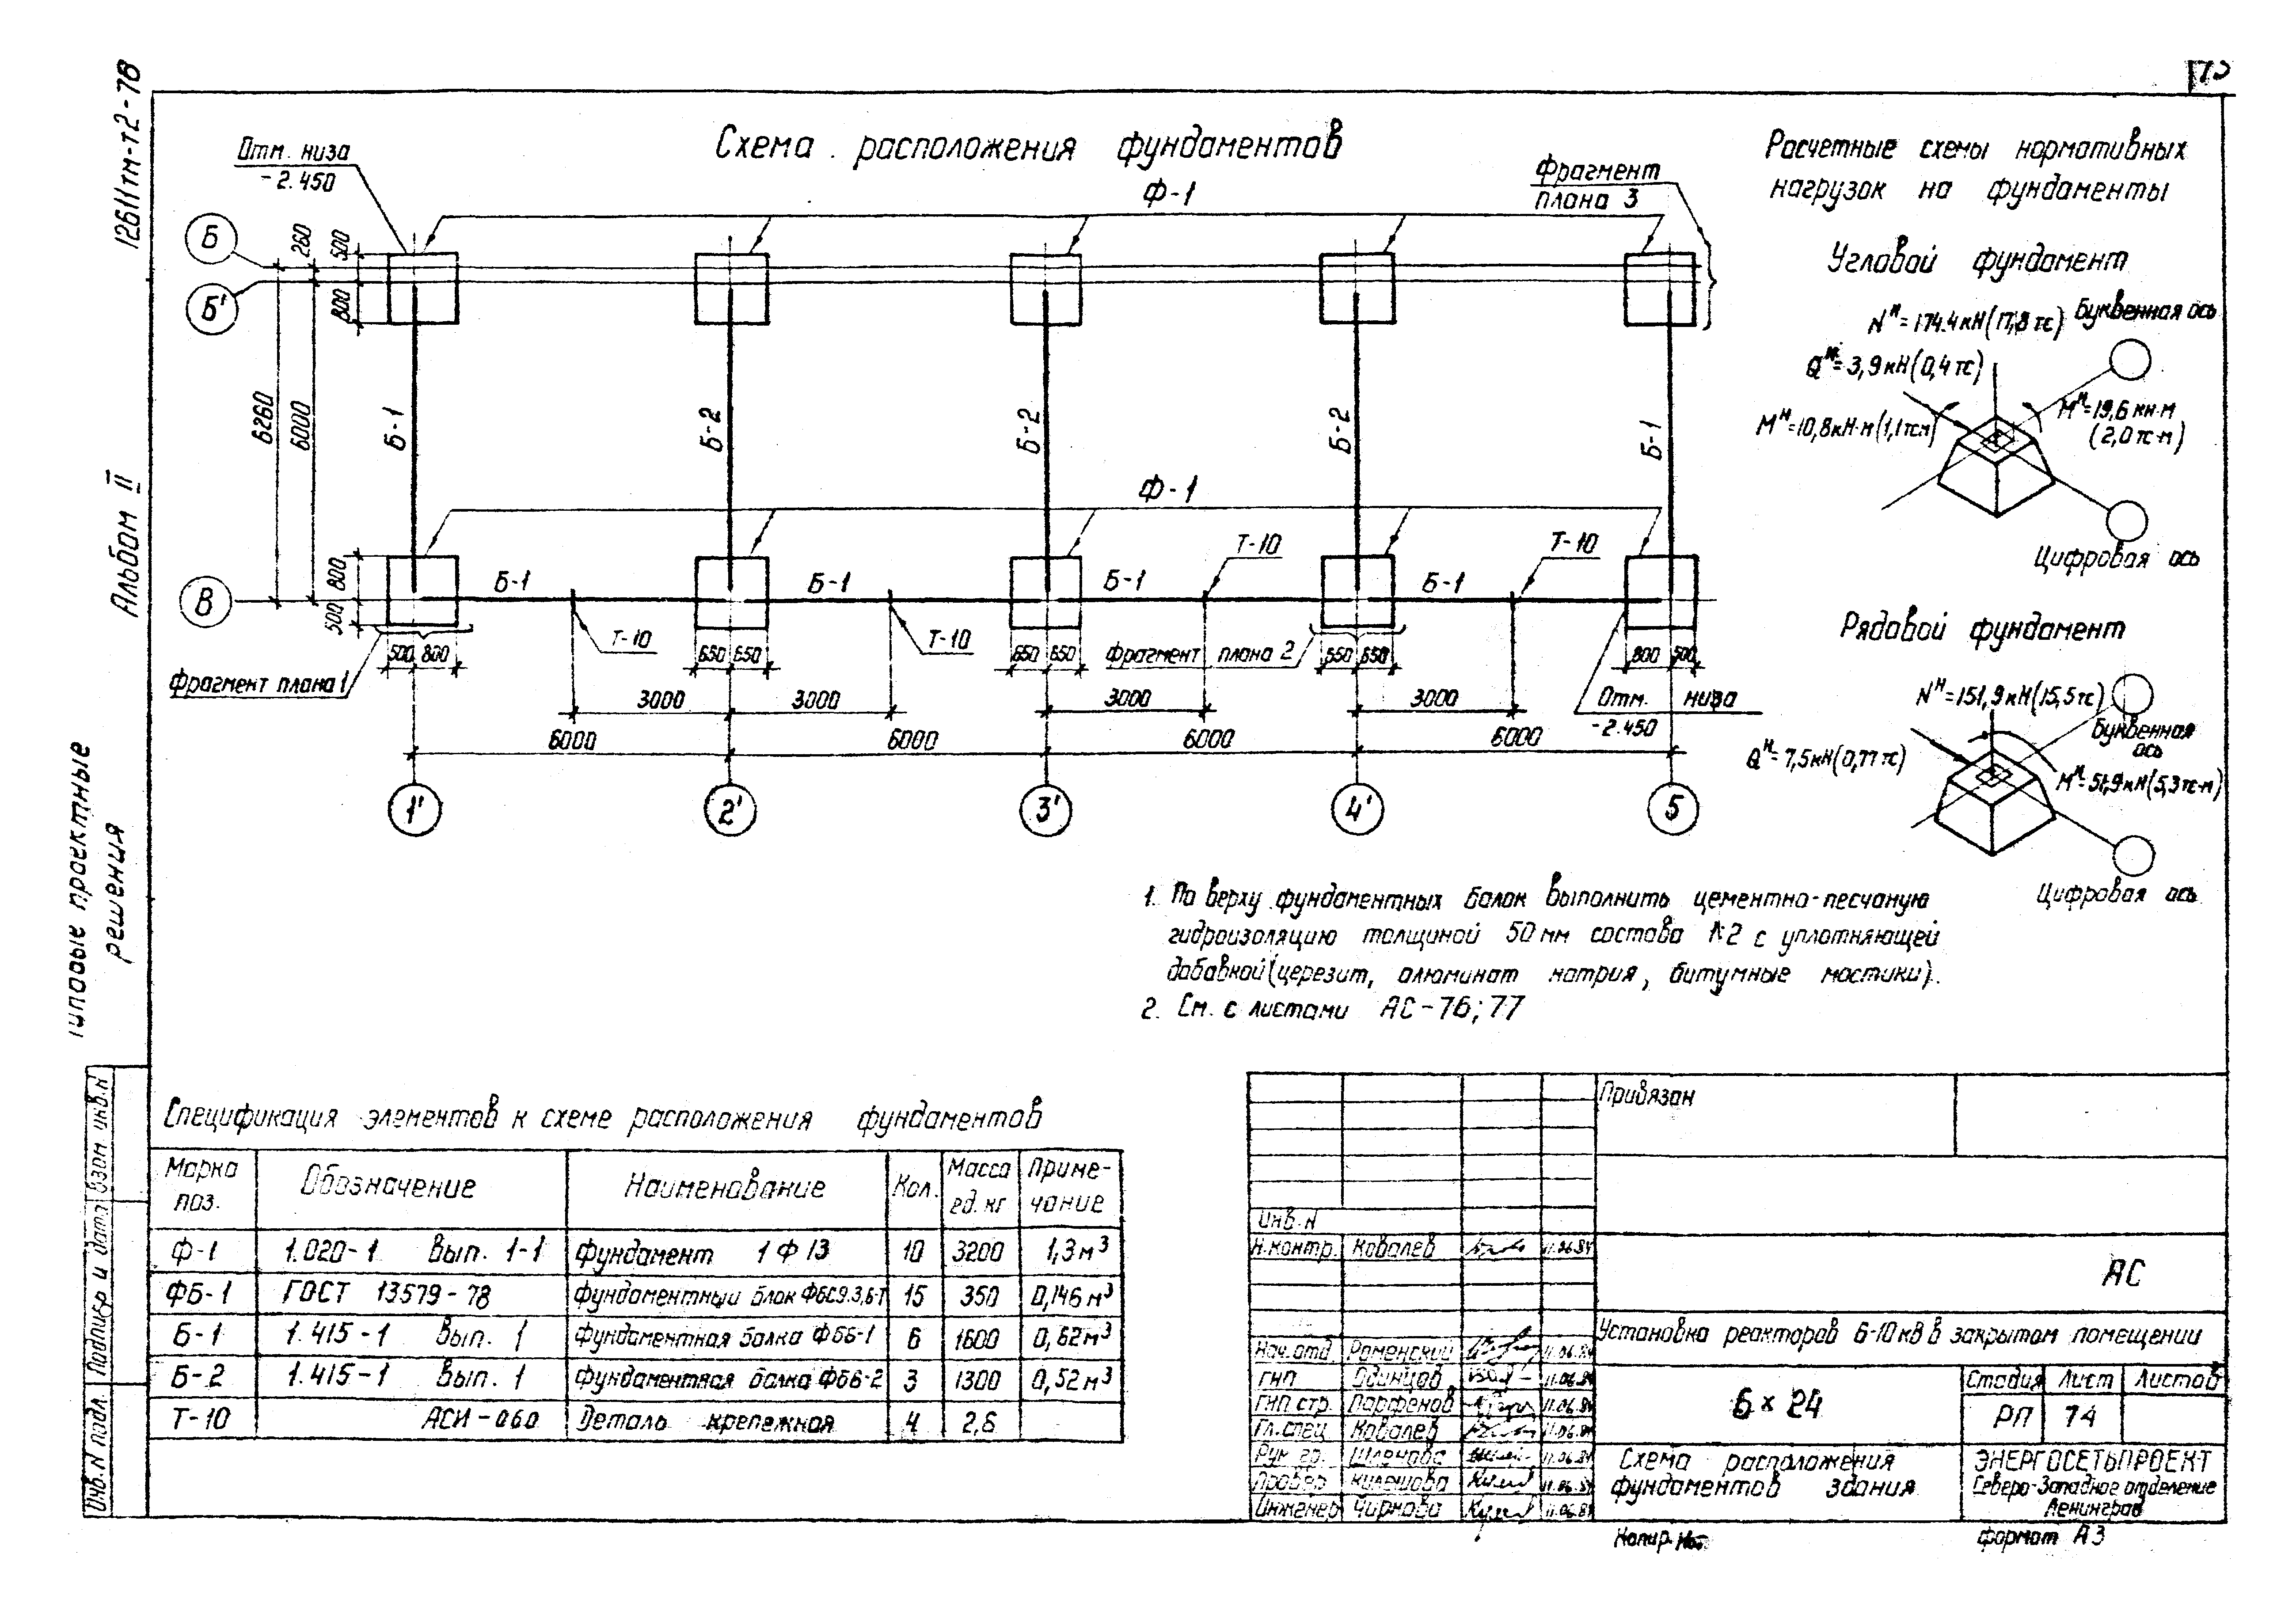 12611тм-т2-78
Альбом II
Типовые проектные
решения
Схема расположения фундаментов
Отм. низа
-2.450
Ф-1
Фрагмент
плана 3
Б
Б'
В
260
500
800
6260
6000
800
500
Б-1
Б-2
Б-2
Б-2
Б-1
Ф-1
Б-1
Б-1
Б-1
Б-1
Т-10
Т-10
Т-10
Т-10
500 800
650 650
650 650
650 650
800 500
Фрагмент плана 1
Фрагмент плана 2
Отм. низа
-2.450
3000
3000
3000
3000
6000
6000
6000
6000
1'
2'
3'
4'
5
Расчетные схемы нормативных
нагрузок на фундаменты
Угловой фундамент
Nн=174.4кН(17,8тс)
Буквенная ось
Qн=3,9кН(0,4тс)
Мн=10,8кН·м(1,1тсм)
Мн=19,6кн·м
(2,0тс·м)
Цифровая ось
Рядовой фундамент
Nн=151,9кН(15,5тс)
Буквенная
ось
Qн=7,5кН(0,77тс)
Мн=51,9кН(5,3тс·м)
Цифровая ось
1. По верху фундаментных балок выполнить цементно-песчаную
гидроизоляцию толщиной 50мм состава №2 с уплотняющей
добавкой(церезит, алюминат натрия, битумные мастики).
2. См. с листами АС-76;77
Спецификация элементов к схеме расположения фундаментов
Марка поз. Обозначение Наименование Кол. Масса ед. кг Примечание
Ф-1 1.020-1 Вып. 1-1 Фундамент 1Ф13 10 3200 1,3м³
ФБ-1 ГОСТ 13579-78 Фундаментный блок ФБС9.3,6-Т 15 350 0,146м³
Б-1 1.415-1 Вып. 1 Фундаментная балка ФБ6-1 6 1600 0,62м³
Б-2 1.415-1 Вып. 1 Фундаментная балка ФБ6-2 3 1300 0,52м³
Т-10 АСИ-060 Деталь крепежная 4 2,6
Взам. инв.N
Подпись и дата
Инв.N подл.
Привязан
Инв.N
Н.контр. Ковалев 11.06.84
АС
Установка реакторов 6-10кВ в закрытом помещении
Нач.отд. Роменский 11.06.84
ГИП Одинцов 11.06.84
ГИП стр. Парфенов 11.06.84
Гл.спец Ковалев 11.06.84
Рук. гр. Шленова 11.06.84
Провер. Кулешова 11.06.84
Инженер Чирнова 11.06.84
6×24
Стадия Лист Листов
РП 74
Схема расположения
фундаментов здания
ЭНЕРГОСЕТЬПРОЕКТ
Северо-Западное отделение
Ленинград
Копир.
формат А3